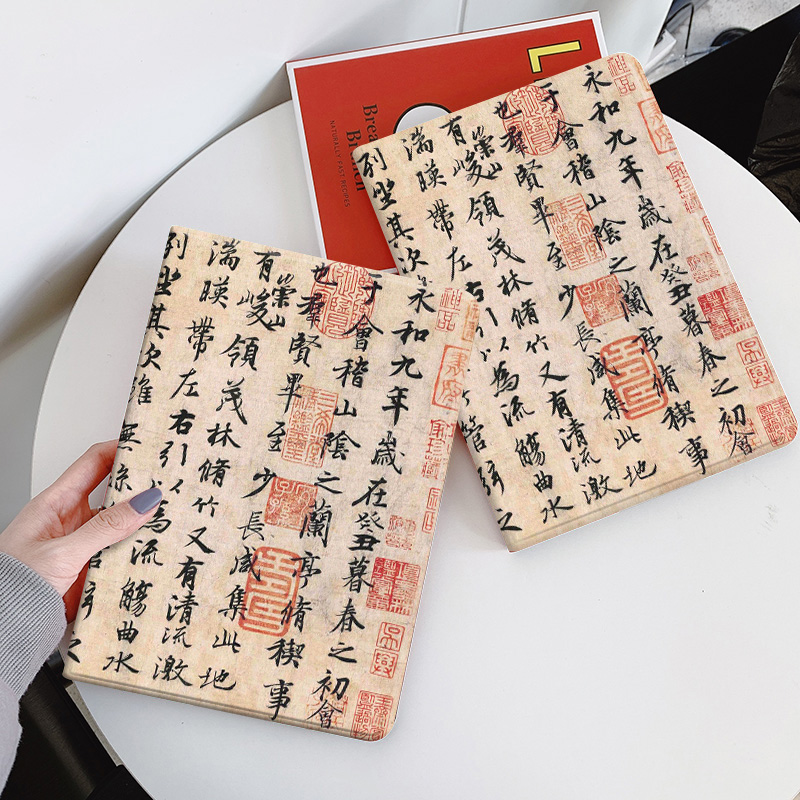 永和九年歲在癸丑暮春之初會
于會稽山陰之蘭亭脩稧事
也羣賢畢至少長咸集此地
有崇山峻領茂林脩竹又有清流激
湍暎帶左右引以為流觴曲水
列坐其次雖無
永和九年歲在癸丑暮春之初會
于會稽山陰之蘭亭脩稧事
也羣賢畢至少長咸集此地
有崇山峻領茂林脩竹又有清流激
湍暎帶左右引以為流觴曲水
列坐其次
管弦之
L
Brea
NATURALLY FAST RECIPES